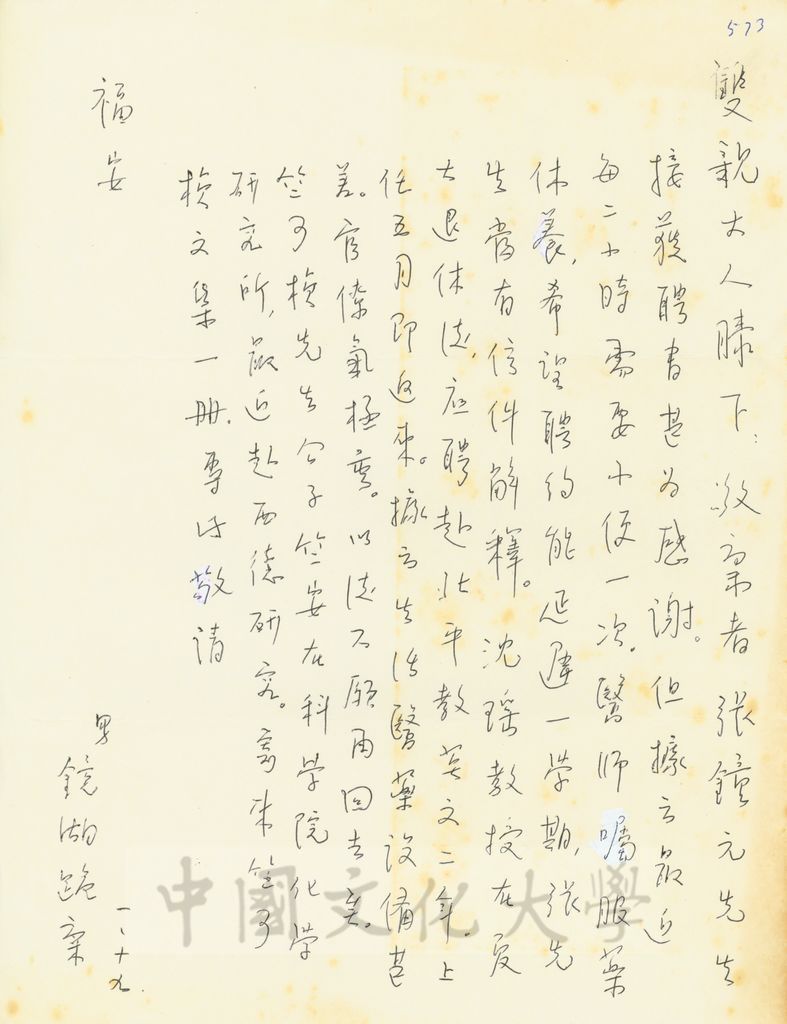 573
雙親大人膝下：敬稟者張鐘元先生
接獲聘書甚為感謝。但據云最近
每二小時需要小便一次，醫師囑服藥
休養，希望聘約能延遲一學期，張先
生當有信件解釋。沈瑶教授在夏
大退休後，应聘赴北平教英文二年。上
任五月即返來。據云生活醫藥设備甚
差。官僚氣極重。以後不願再回去矣。
竺可楨先生公子竺安在科學院化學
研究所，最近赴西德研究。寄來竺可
楨文集一冊。專此敬請
福安
男
鏡湖跪稟
一、十九.
中國文化大學